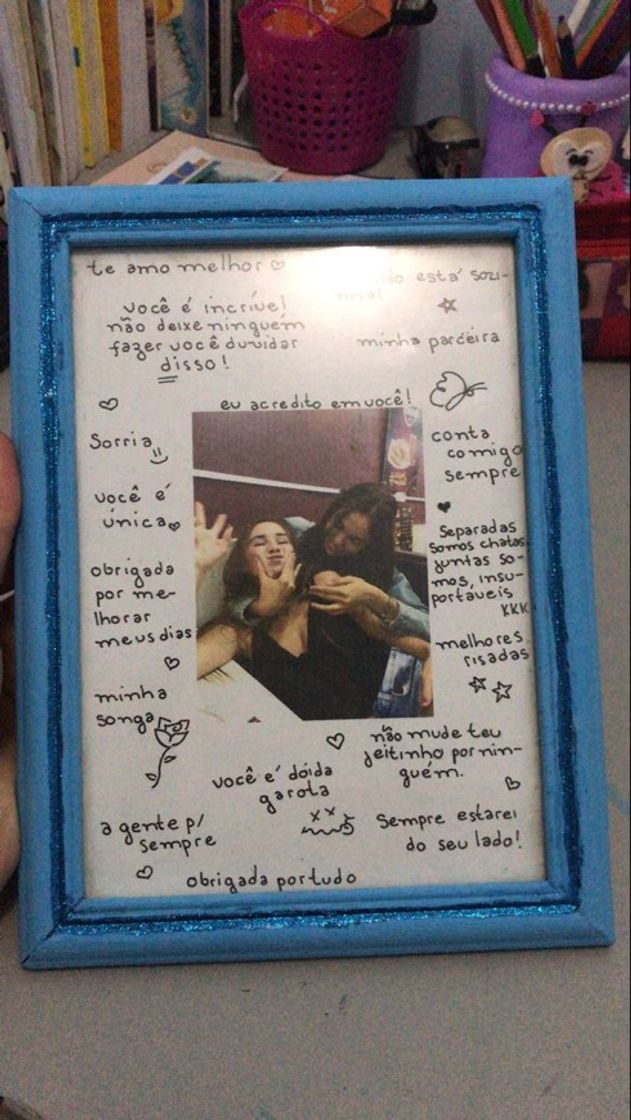 te amo melhor
está sozi-
você é incrível
não deixe ninguém
fazer você duvidar
disso!
minha parceira
eu acredito em você!
Sorria
conta
comigo
sempre
você é
única
Separadas
somos chatas,
juntas so-
mos, insu-
portaveis
KKK
obrigada
por me-
lhorar
meus dias
melhores
risadas
minha
songa
não mude teu
jeitinho por nin-
guém.
você é dóida
garota
a gente p/
sempre
Sempre estarei
do seu lado!
obrigada por tudo